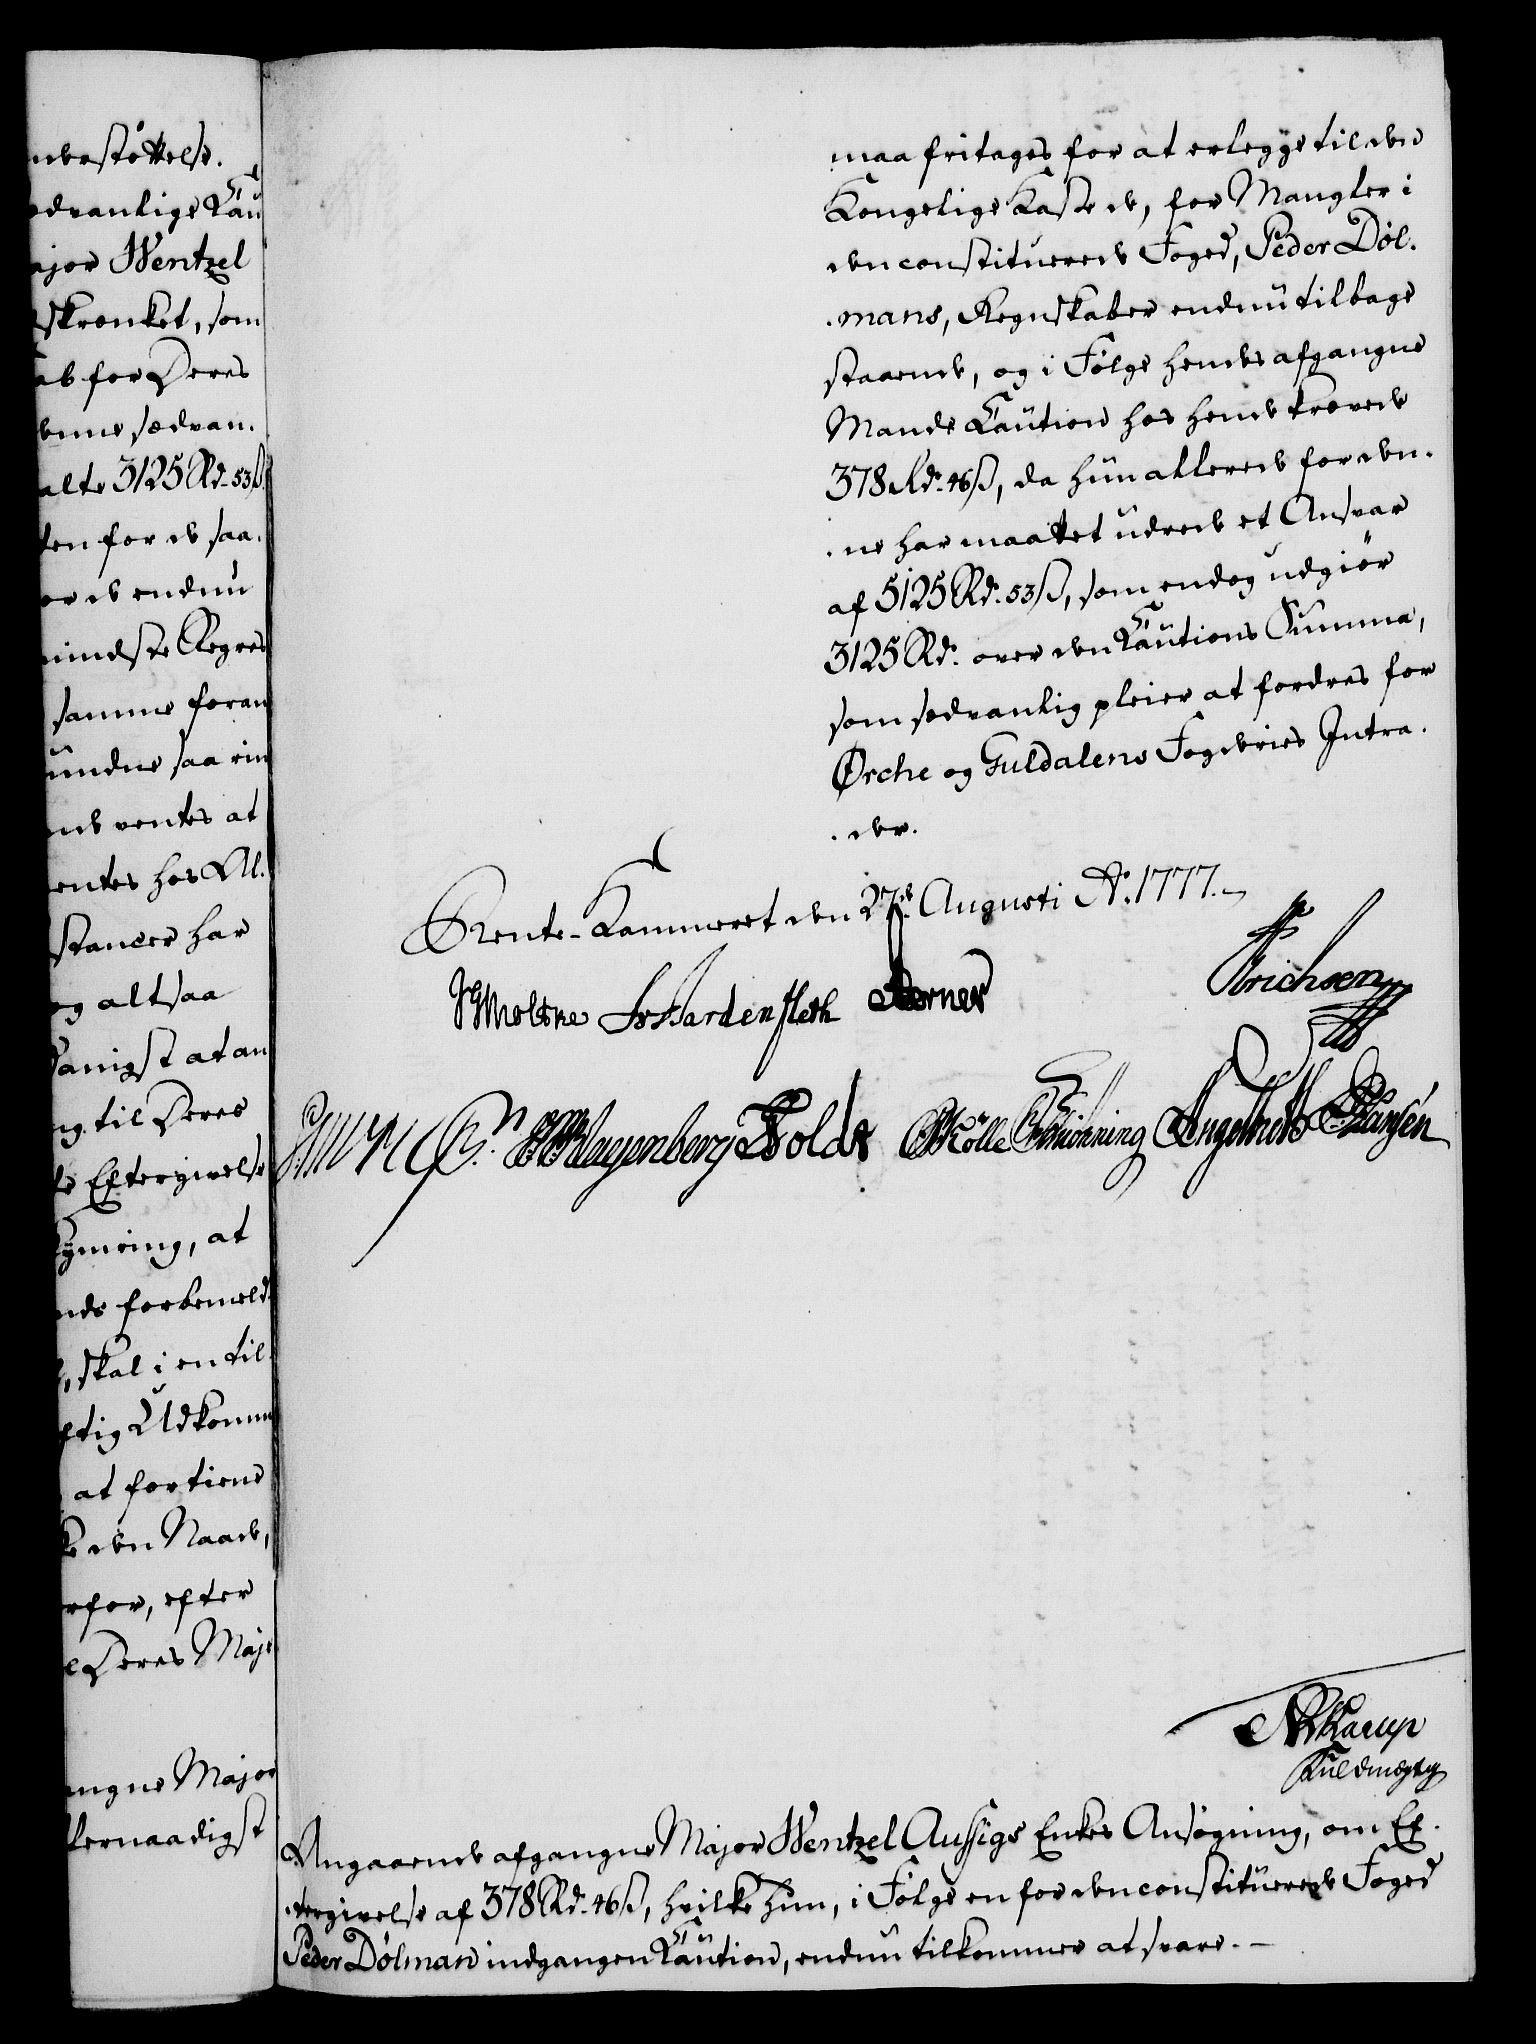 nderstøttelse.
ædvanlige Cau
ajor Wentzel
skrænket, som
ab for Deres
denne sædvan.
alte 3125 Rd. 53 ß
ten for de saa.
or de endnu
mindste Regres
samme foran
undne saa rin
nde ventes at
entes hos Al.
stancer har
og altsaa
danigst at an
ng til Deres
te Eftergivelse
Hymring, at
nds forbemeld.
skal i en til
ftig Udkomm
at fortiene
ke den Naade,
rfor, efter
Deres Maje
angne Major
lernaadigst
maa fritages for at erlegge til den
Kongelige Kasse de, for Mangler i
den constituerede Foged, Peder Döl.
.mans, Regnskaber endnu tilbage
staaende, og i Følge hendes afgangne
Mands Caution hos hende krævede
378 Rd. 46 ß, da hun allerede for den.
.ne har maattet udrede et Ansvar
af 5125 Rd. 53 ß, som endog udgiör
3125 Rd. over den Cautions Summa,
som sædvanlig pleier at fordres for
Ørche og Guldalens Fogderies Intra.
.der.
Rente-Kammeret den 27de Augusti Ao. 1777.
JGMoltke Hardenfleth Berner Erichsen
Wagenberg Holdt Mölle Schiönning Engelbrett Hansen
Karup
Fuldmægtig
Angaaende afgangne Major Wentzel Aussigs Enkes Ansøgning, om Ef.
.tergivelse af 378 Rd. 46 ß, hvilke hun, i Følge en for den constituerede Foged
Peder Dölman indgangen Caution, endnu tilkommer at svare. –